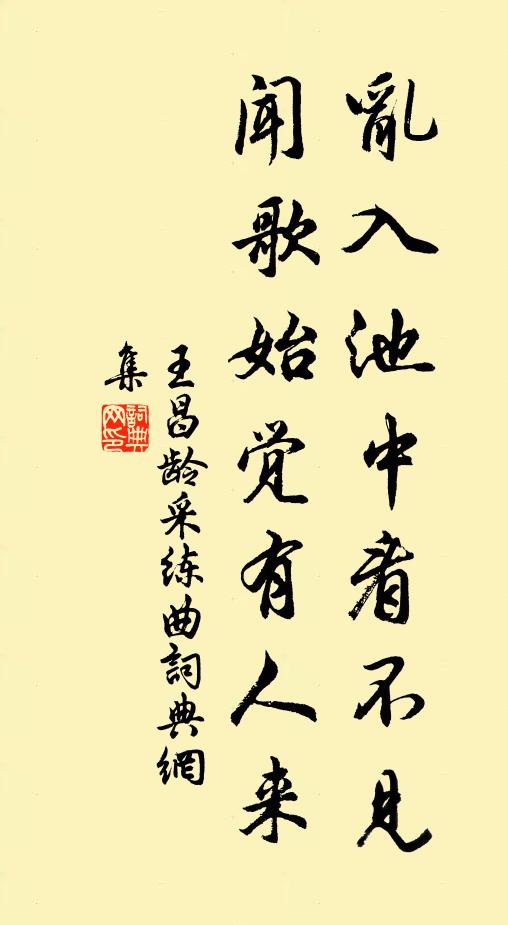 亂入池中看不見
闻歌始觉有人来
王昌龄采练曲詞典網
集
詞典
网印